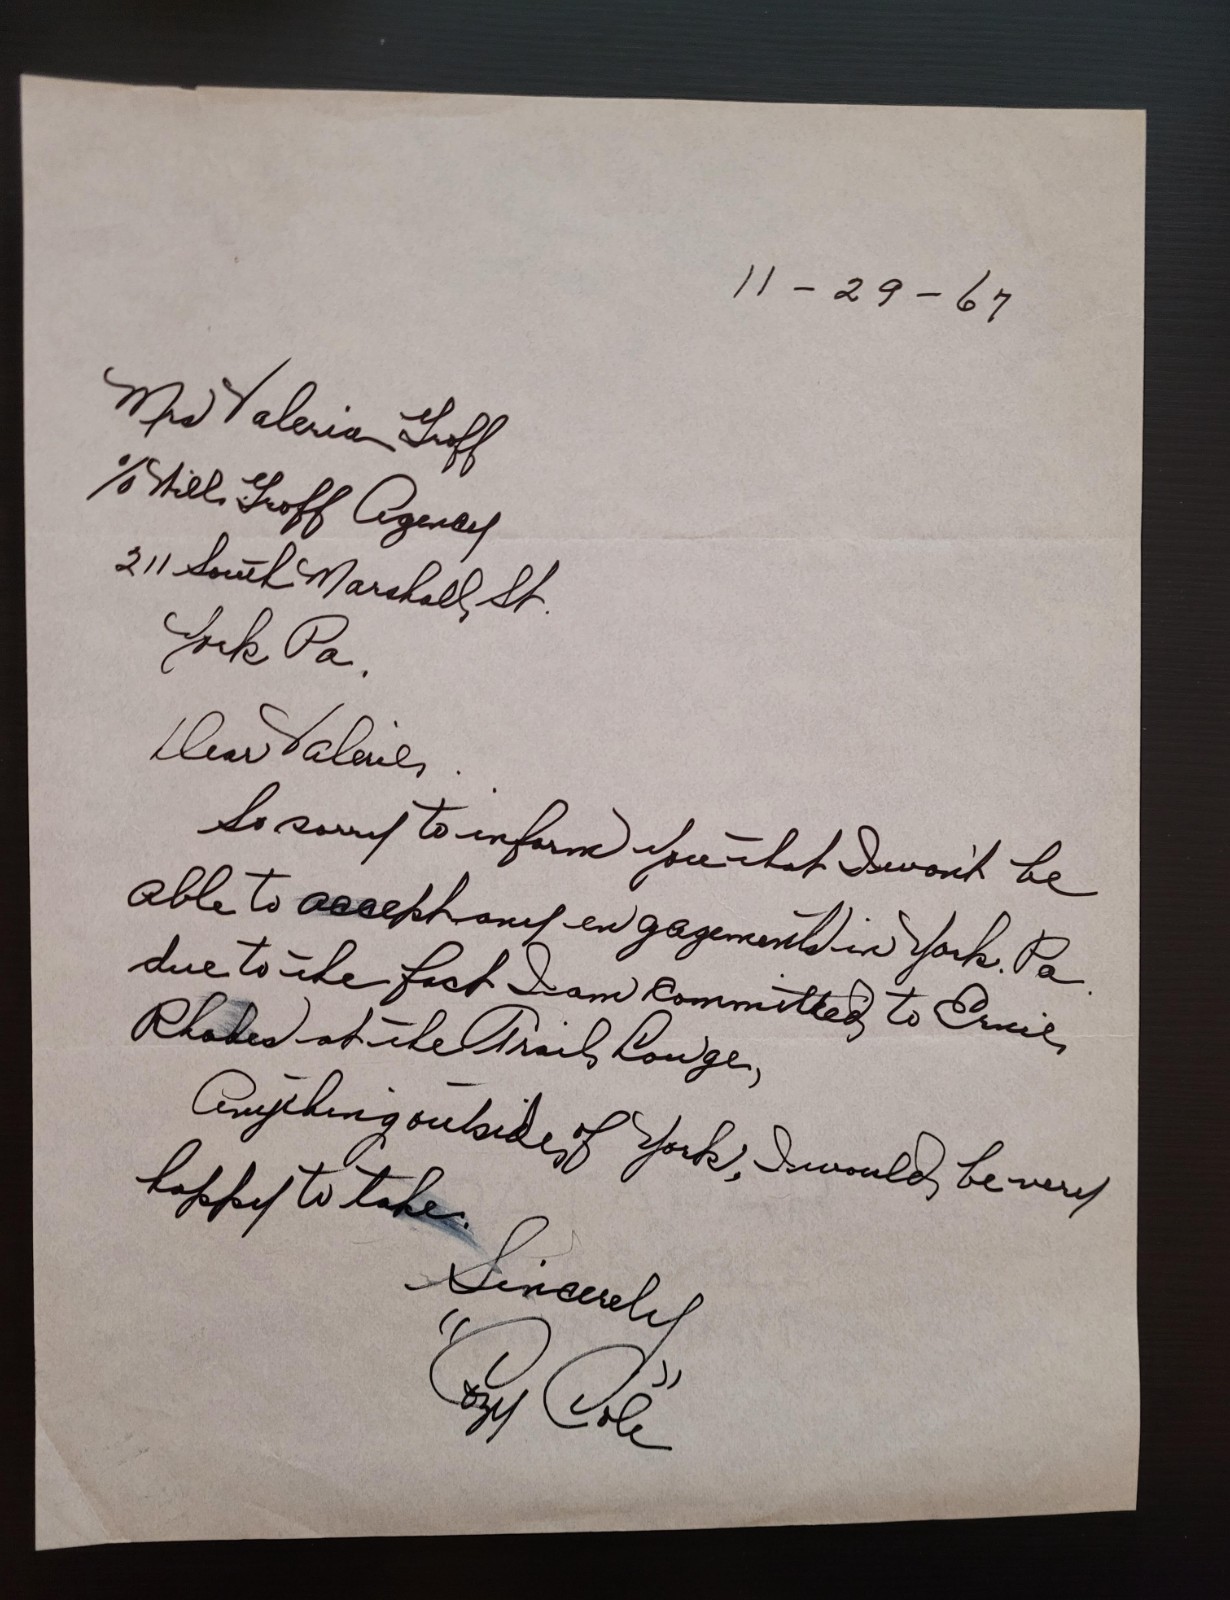 11 - 29 - 67
Mrs Valeria Groff
c/o Will Groff Agency
211 South Marshall St.
York Pa.
Dear Valerie.
So sorry to inform you that I won't be
able to accept any engagements in York. Pa.
due to the fact I am committed to Ernie
Rhodes at the Trail Lounge,
Anything outside of York, I would be very
happy to take.
Sincerely
"Cozy Cole"